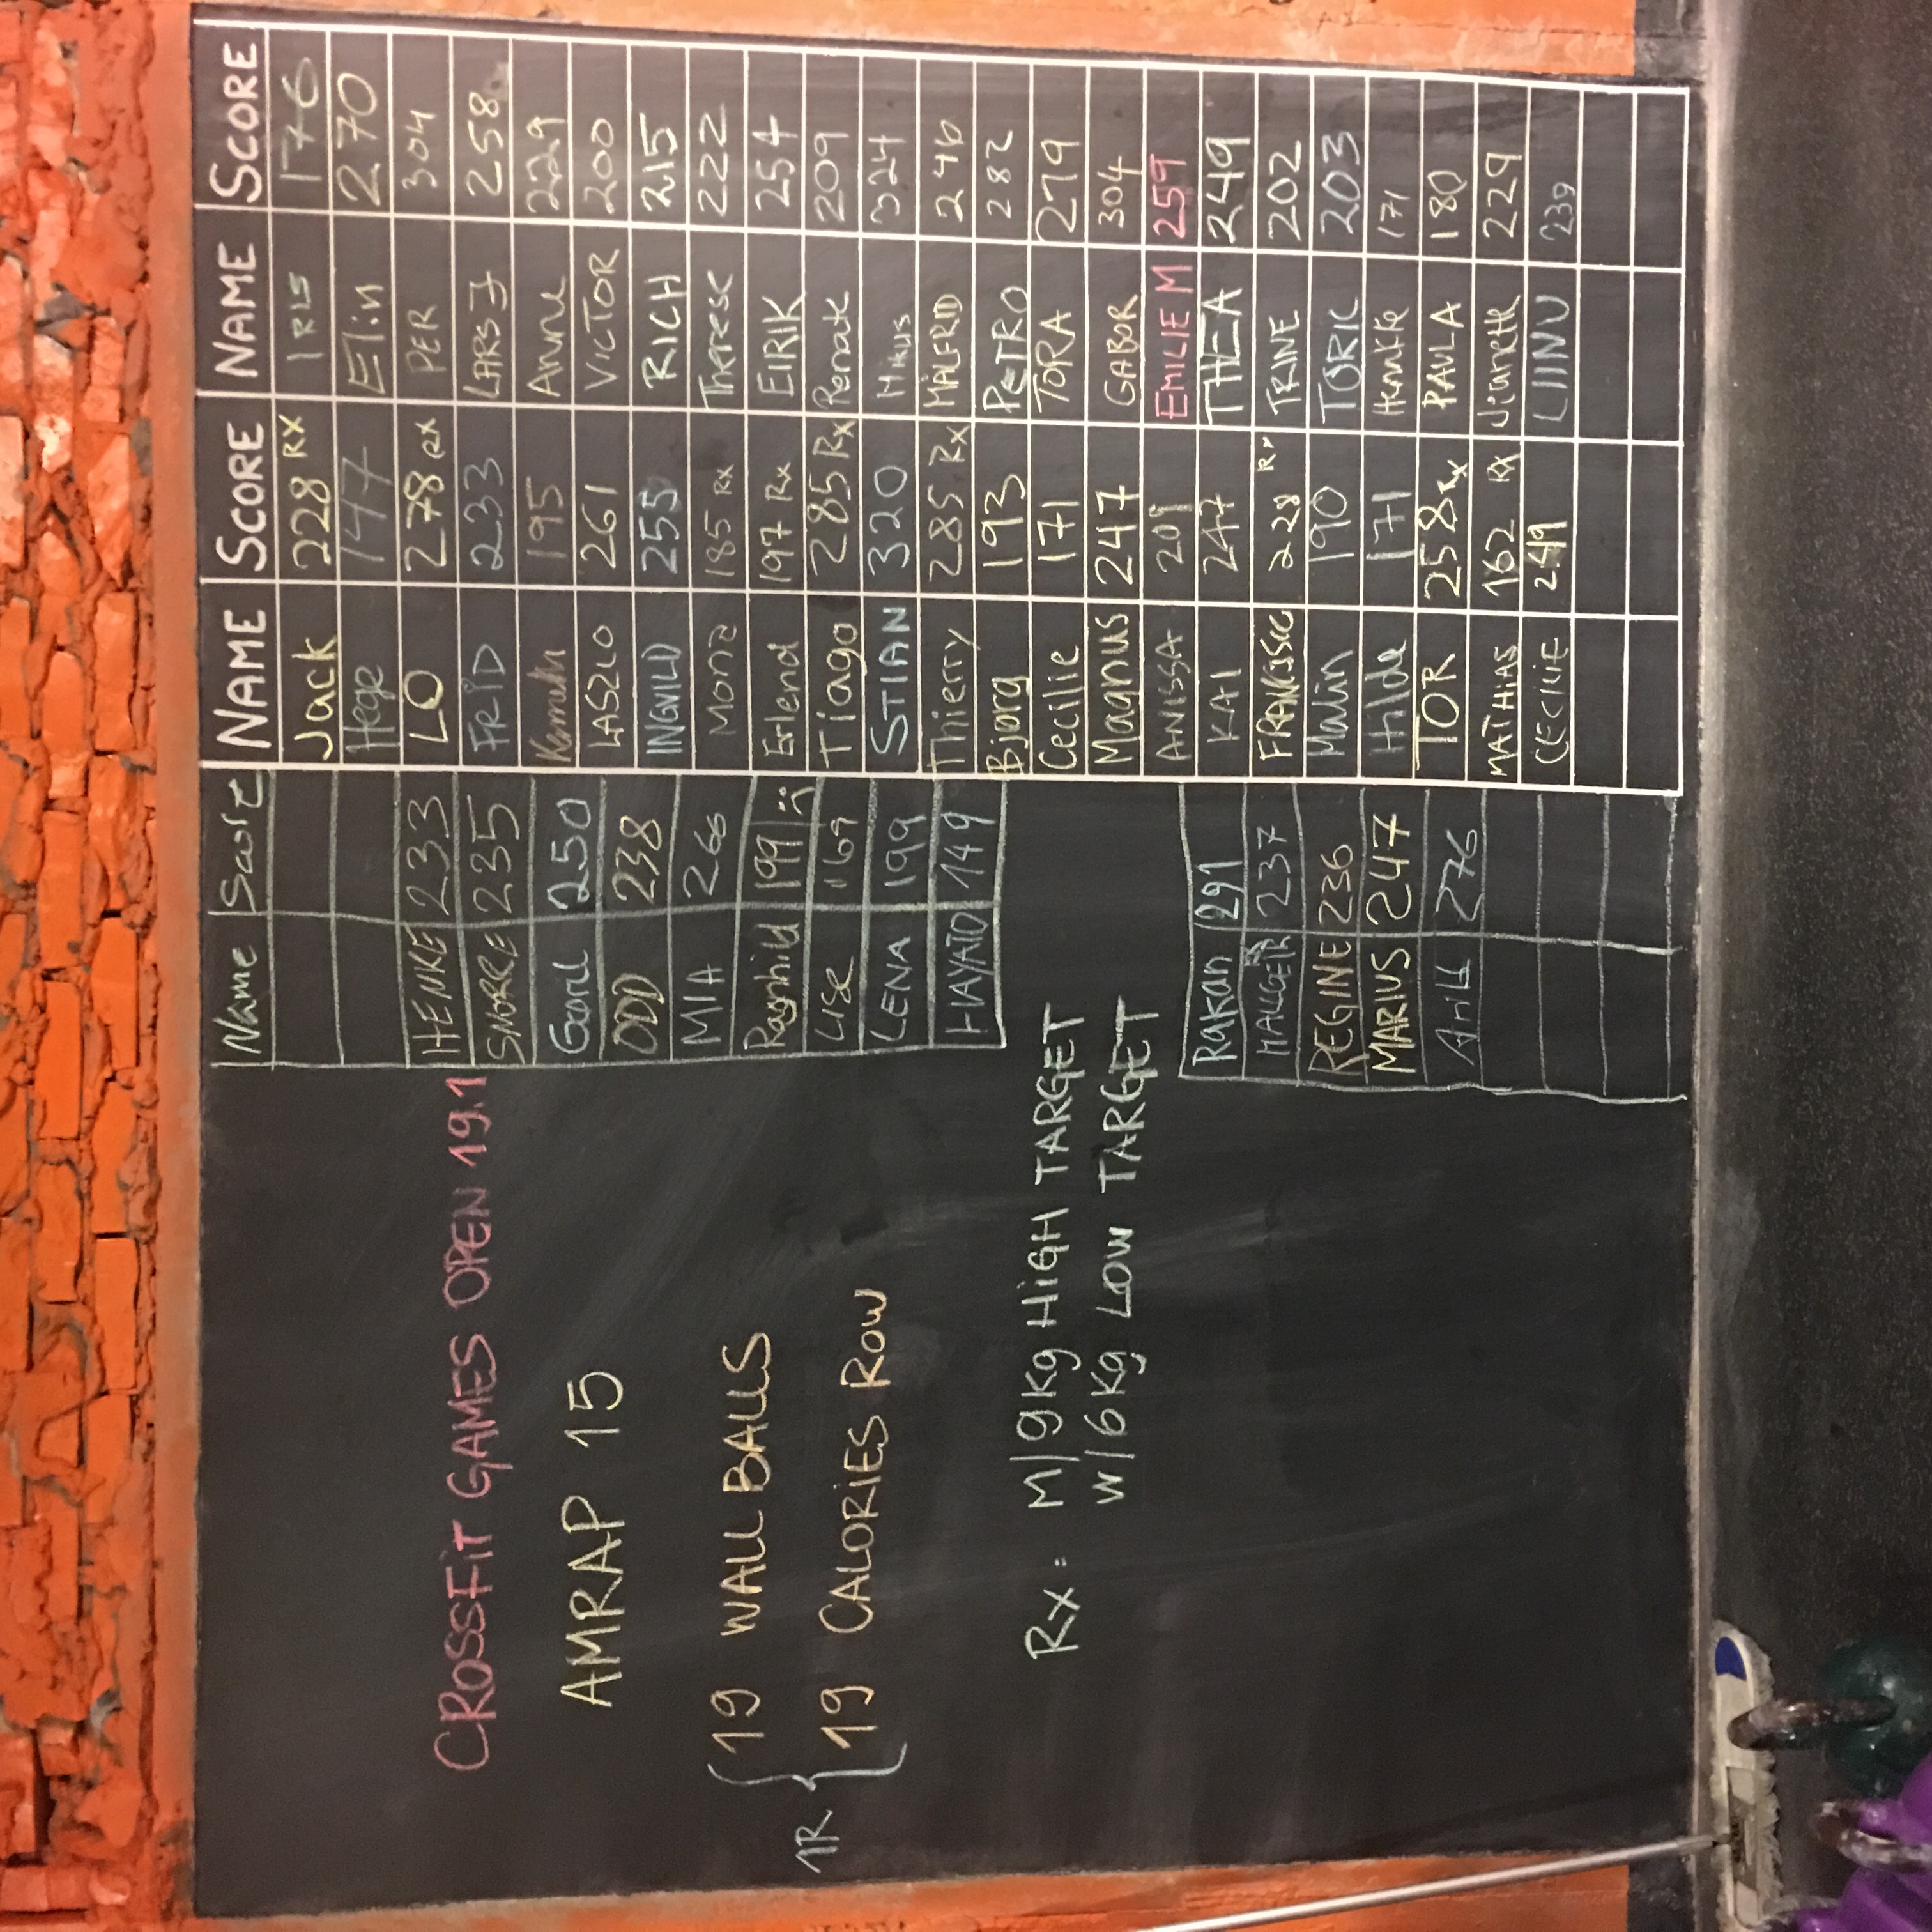 CROSSFIT GAMES OPEN 19.1
AMRAP 15
1R { 19 WALL BALLS
19 CALORIES ROW
Rx: M/9kg HIGH TARGET
W/6kg LOW TARGET
Name Score
HENKE 233
SNORRE 235
Gard 250
ODD 238
MIA 266
Ragnhild 199 :(
LISE 169
LENA 199
HAYATO 149
Rakan 291
237
REGINE 236
MARIUS 247
Arild 276
NAME SCORE NAME SCORE
Jack 228 RX IRIS 176
Hege 147 Elin 270
LO 278 RX PER 304
FRID 233 LARS J 258
Kenneth 195 Anne 229
LASZLO 261 VICTOR 200
INGVILD 255 RICH 215
Mona 185 Rx Therese 222
Erlend 197 Rx EIRIK 254
Tiago 285 Rx Renate 209
STIAN 320 324
Thierry 285 Rx MALFRID 246
Bjorg 193 PETRO 282
Cecilie 171 TORA 279
Magnus 247 GABOR 304
ANISSA 201 EMILIE M 259
KAI 247 THEA 249
228 Rx TRINE 202
Malin 190 TORIL 203
Hilde 171 Henke 171
TOR 258 Rx PAULA 180
MATHIAS 162 RX Jeanette 229
CECILIE 249 LINNU 239